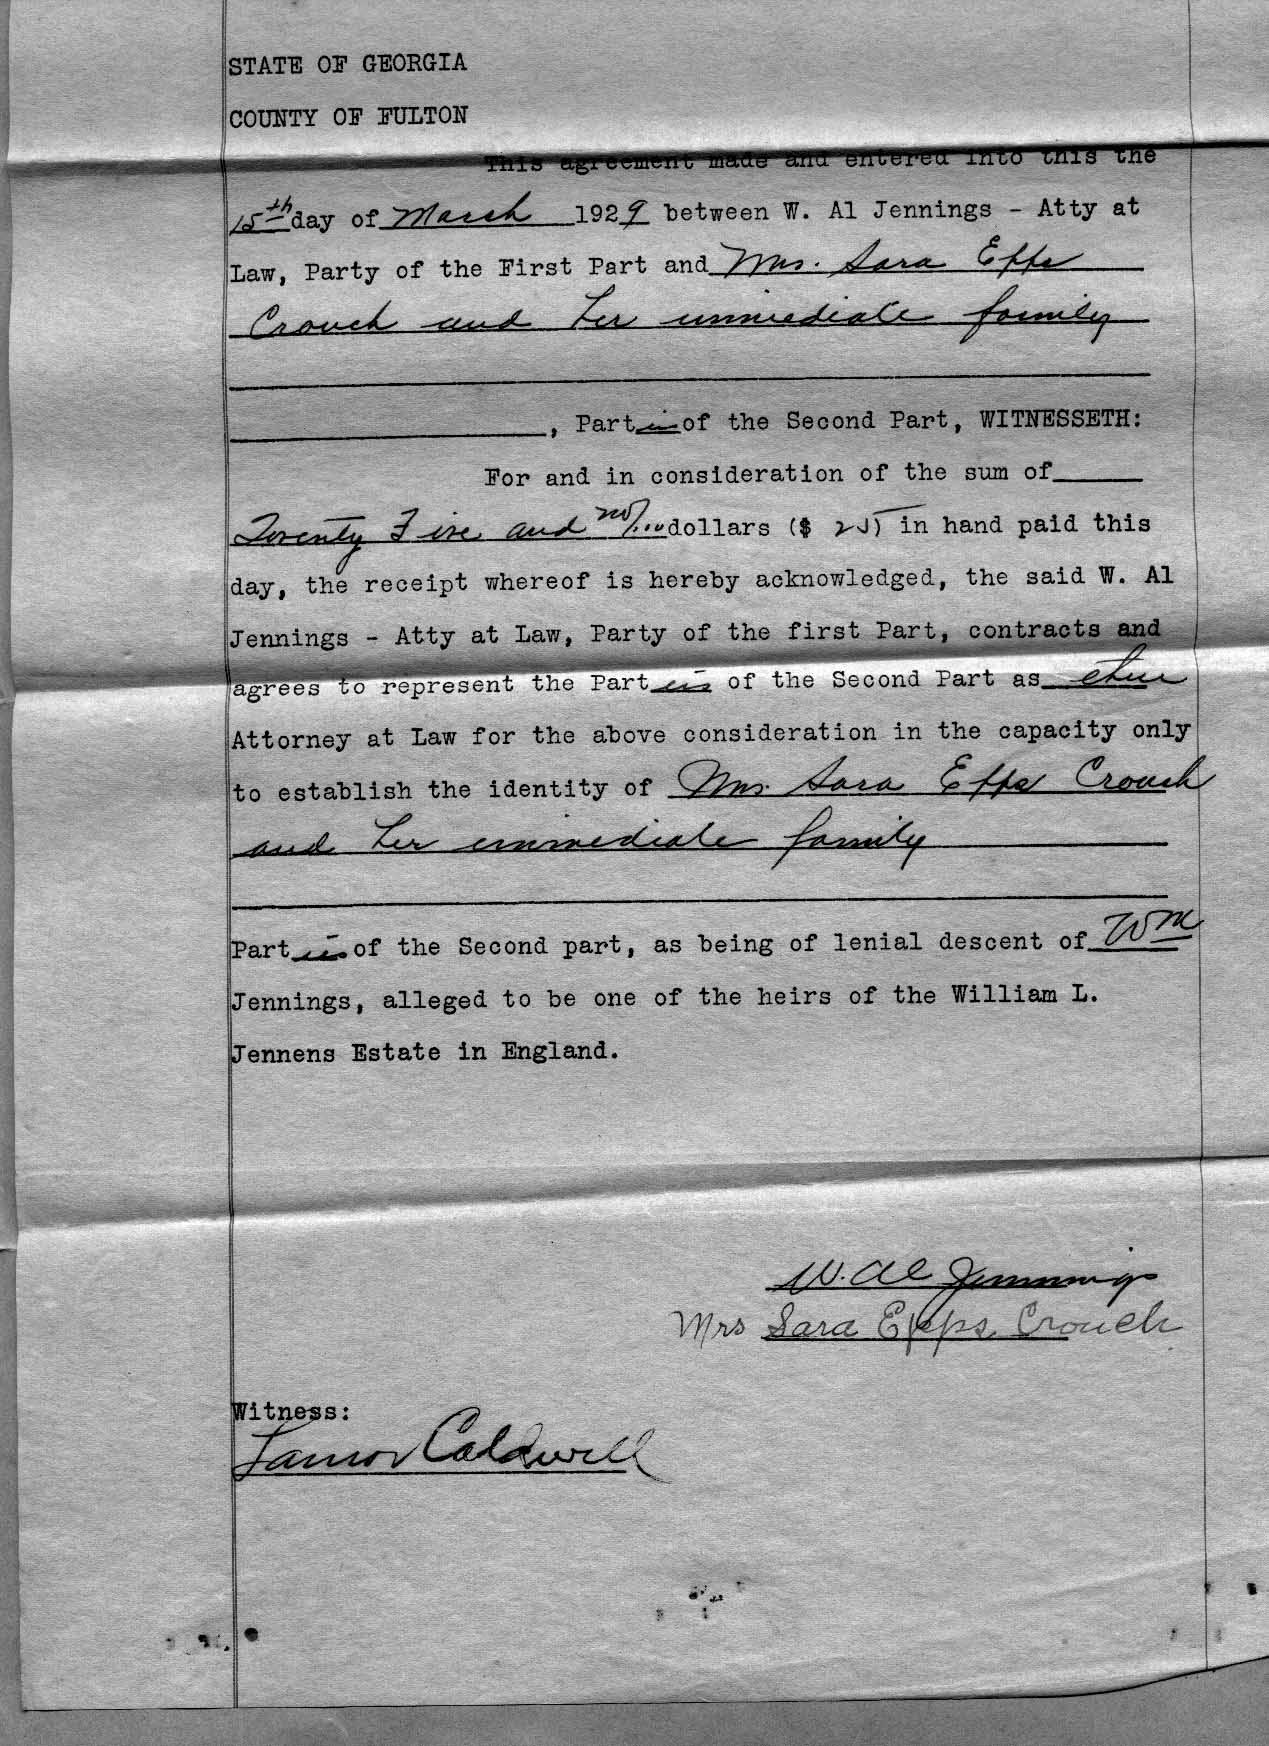 STATE OF GEORGIA
COUNTY OF FULTON
This agreement made and entered into this the
15th day of March 1929 between W. Al Jennings - Atty at
Law, Party of the First Part and Mrs. Sara Epps
Crouch and her immediate family
, Parties of the Second Part, WITNESSETH:
For and in consideration of the sum of
Twenty Five and no/100 dollars ($ 25) in hand paid this
day, the receipt whereof is hereby acknowledged, the said W. Al
Jennings - Atty at Law, Party of the first Part, contracts and
agrees to represent the Parties of the Second Part as their
Attorney at Law for the above consideration in the capacity only
to establish the identity of Mrs. Sara Epps Crouch
and her immediate family
Parties of the Second part, as being of lenial descent of Wm
Jennings, alleged to be one of the heirs of the William L.
Jennens Estate in England.
W. Al Jennings
Mrs Sara Epps Crouch
Witness:
Lamor Caldwell